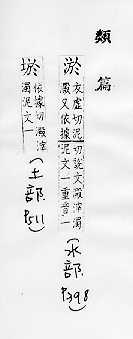 類篇
淤 衣虛切泥澱又依據切說文澱滓濁泥文一重音一 (水部 p398)
依據切澱滓濁泥文一 (土部 p511)